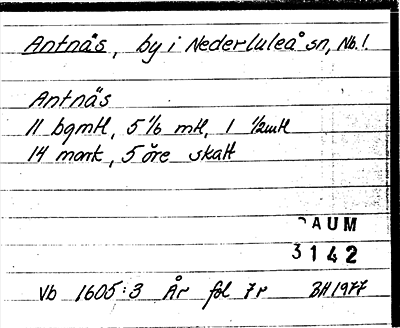 Antnäs, by i Nederluleå sn, Nb.l.
Antnäs
11 bgmtl, 5 1/6 mtl, 1 1/2mtl
14 mark, 5 öre skatt
DAUM
3142
Vb 1605:3 År fol 7r BH 1977